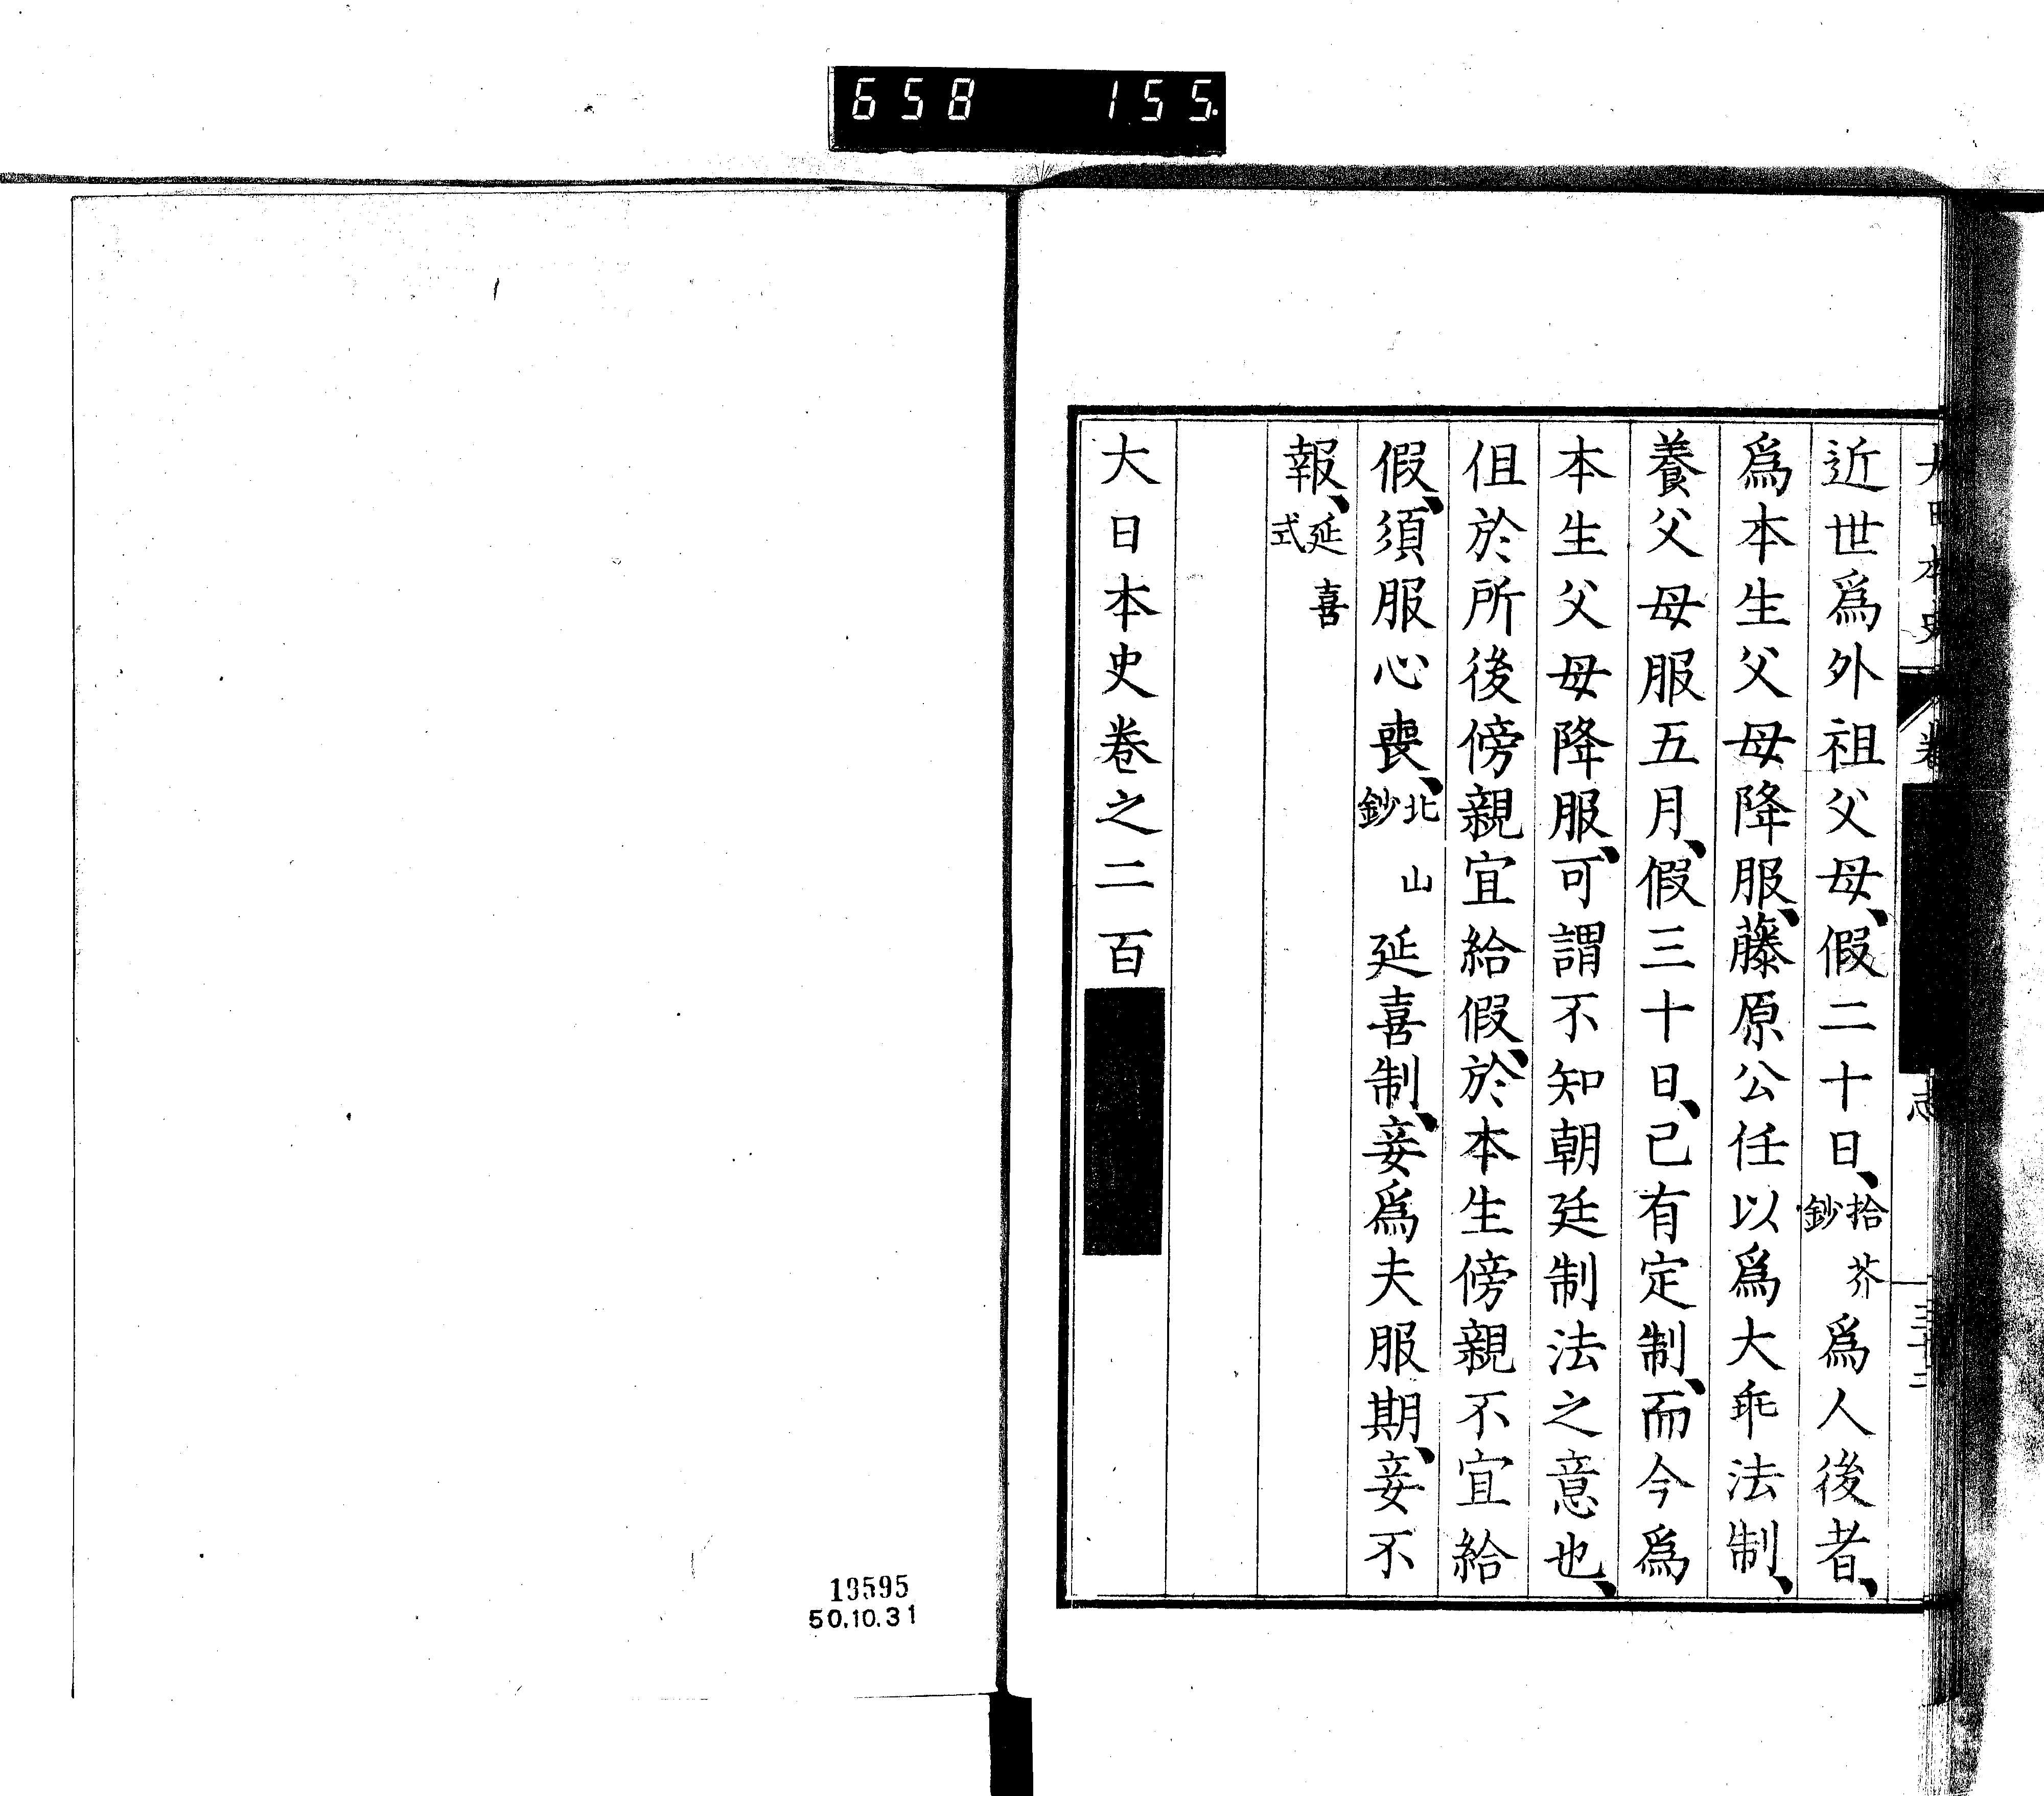 658 155.
大日本史 卷 志 三十二
近世爲外祖父母、假二十日、拾芥鈔爲人後者、
爲本生父母降服、藤原公任以爲大乖法制、
養父母服五月、假三十日、已有定制、而今爲
本生父母降服、可謂不知朝廷制法之意也、
但於所後傍親宜給假、於本生傍親不宜給
假、須服心喪、北山鈔延喜制、妾爲夫服期、妾不
報、延喜式
大日本史卷之二百
19595
50.10.31